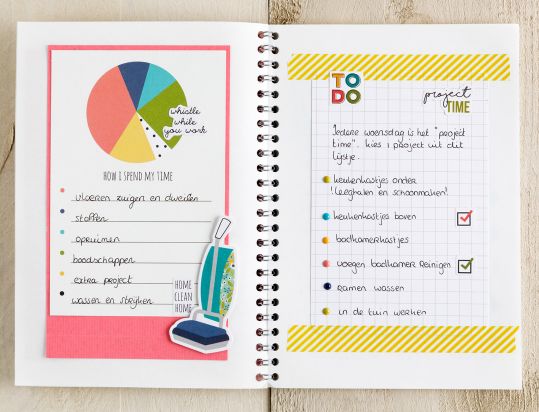 whistle
while
you work
HOW I SPEND MY TIME
vloeren zuigen en dweilen
stoffen
opruimen
boodschappen
extra project
wassen en strijken
HOME
CLEAN
HOME
TO
DO
project
TIME
Iedere woensdag is het "project
time". kies 1 project uit dit
lijstje.
keukenkastjes onder
(leeghalen en schoonmaken!
keukenkastjes boven
badkamerkastjes
voegen badkamer reinigen
ramen wassen
in de tuin werken